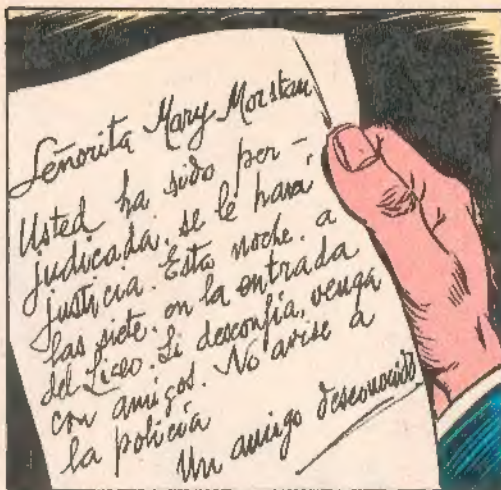 Señorita Mary Morstan
Usted ha sido per-
judicada, se le hará
justicia. Esta noche, a
las siete, en la entrada
del Liceo. Si desconfía, venga
con amigos. No avise a
la policía
Un amigo desconocido